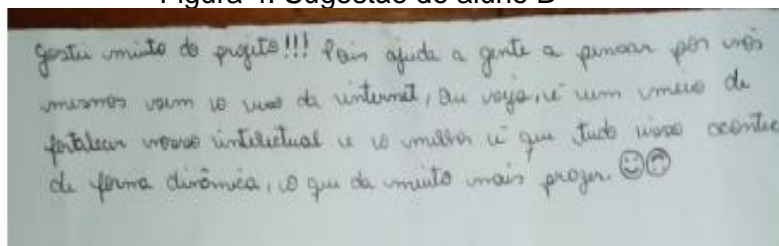 Figura 4: Sugestão do aluno D
Gostei muito do projeto!!! Pois ajuda a gente a pensar por nós
mesmos sem o uso da internet, ou seja, é um meio de
fortalecer nosso intelectual e o melhor é que tudo isso acontece
de forma dinâmica, o que da muito mais prazer. ☺☺